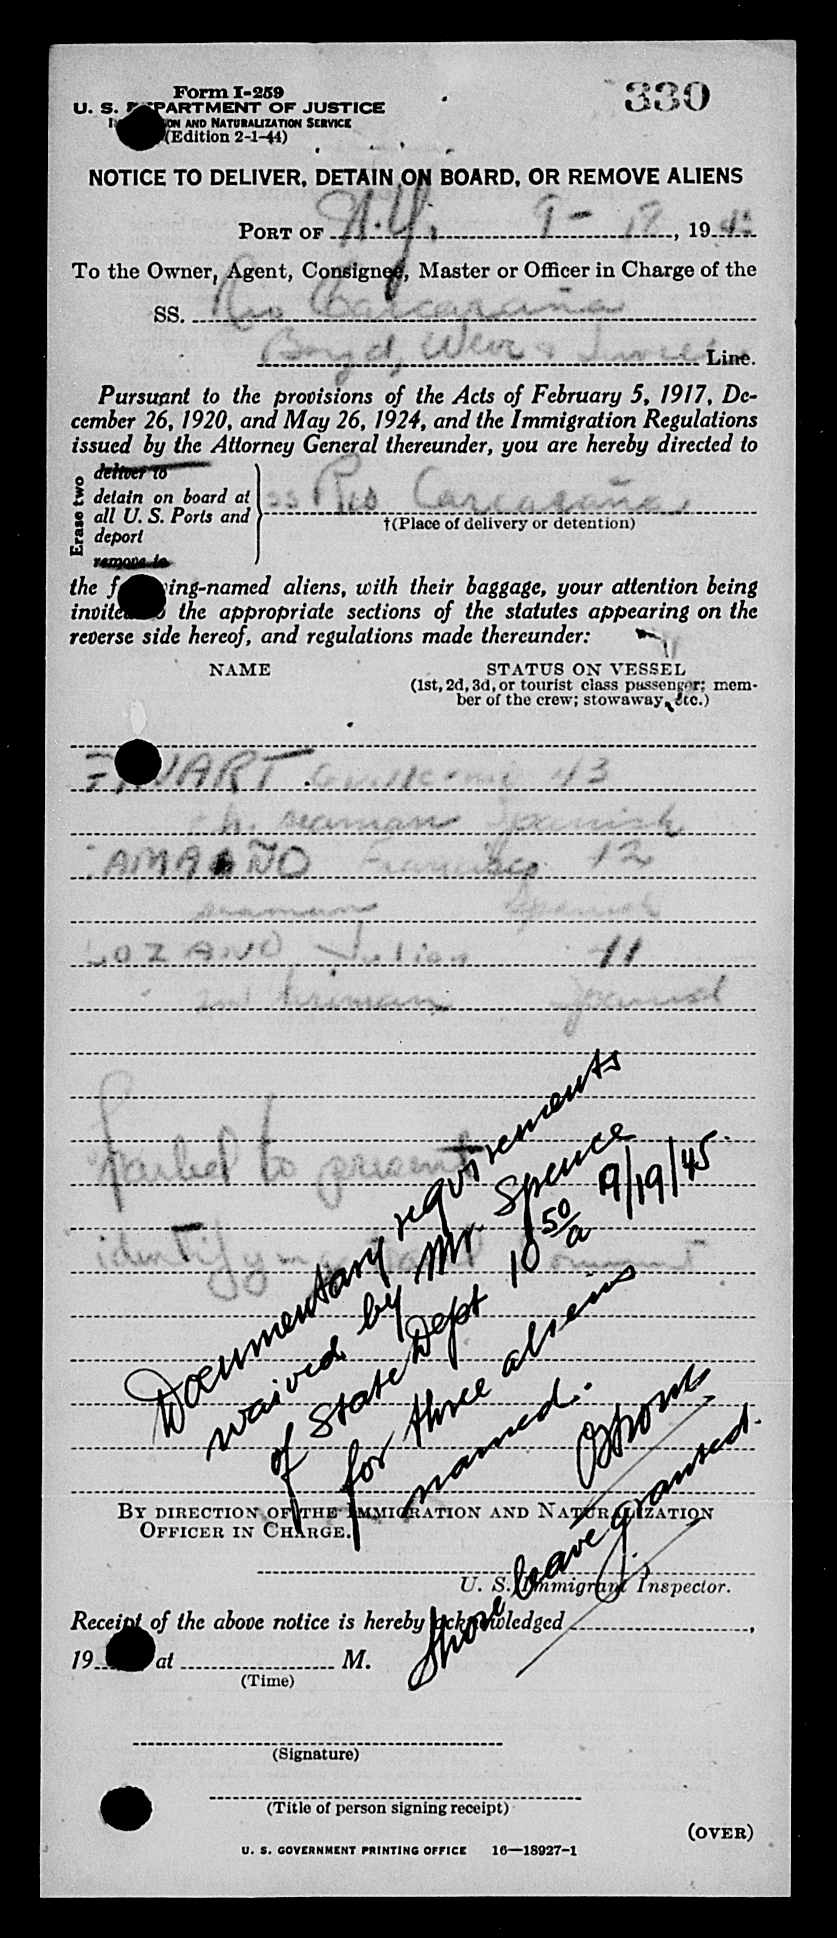 Form I-259
330
U. S. DEPARTMENT OF JUSTICE
ON AND NATURALIZATION SERVICE
(Edition 2-1-44)
NOTICE TO DELIVER, DETAIN ON BOARD, OR REMOVE ALIENS
PORT OF N.Y. 9-18, 1945
To the Owner, Agent, Consignee, Master or Officer in Charge of the
SS. Rio Carcaraña
Boyd, Weir & Line.
Pursuant to the provisions of the Acts of February 5, 1917, De-
cember 26, 1920, and May 26, 1924, and the Immigration Regulations
issued by the Attorney General thereunder, you are hereby directed to
Erase two
deliver to
detain on board at
all U. S. Ports and
deport
remove to
SS Rio Carcaraña
†(Place of delivery or detention)
the f ing-named aliens, with their baggage, your attention being
invited the appropriate sections of the statutes appearing on the
reverse side hereof, and regulations made thereunder:
NAME STATUS ON VESSEL
(1st, 2d, 3d, or tourist class passenger; mem-
ber of the crew; stowaway, etc.)
ART Guillermo 43
ch. seaman Spanish
AMA ÑO Francisco 12
seaman Spanish
LOZANO Julian 11
2nd fireman Spanish
Failed to present
identifying document
Documentary requirements
waived by Mr. Spence
of State Dept 10 50/a 9/19/45
for three aliens
named.
Shore leave granted.
BY DIRECTION OF THE IMMIGRATION AND NATURALIZATION
OFFICER IN CHARGE.
U. S. Immigrant Inspector.
Receipt of the above notice is hereby acknowledged ,
19 at M.
(Time)
(Signature)
(Title of person signing receipt)
(OVER)
U. S. GOVERNMENT PRINTING OFFICE 16—18927-1